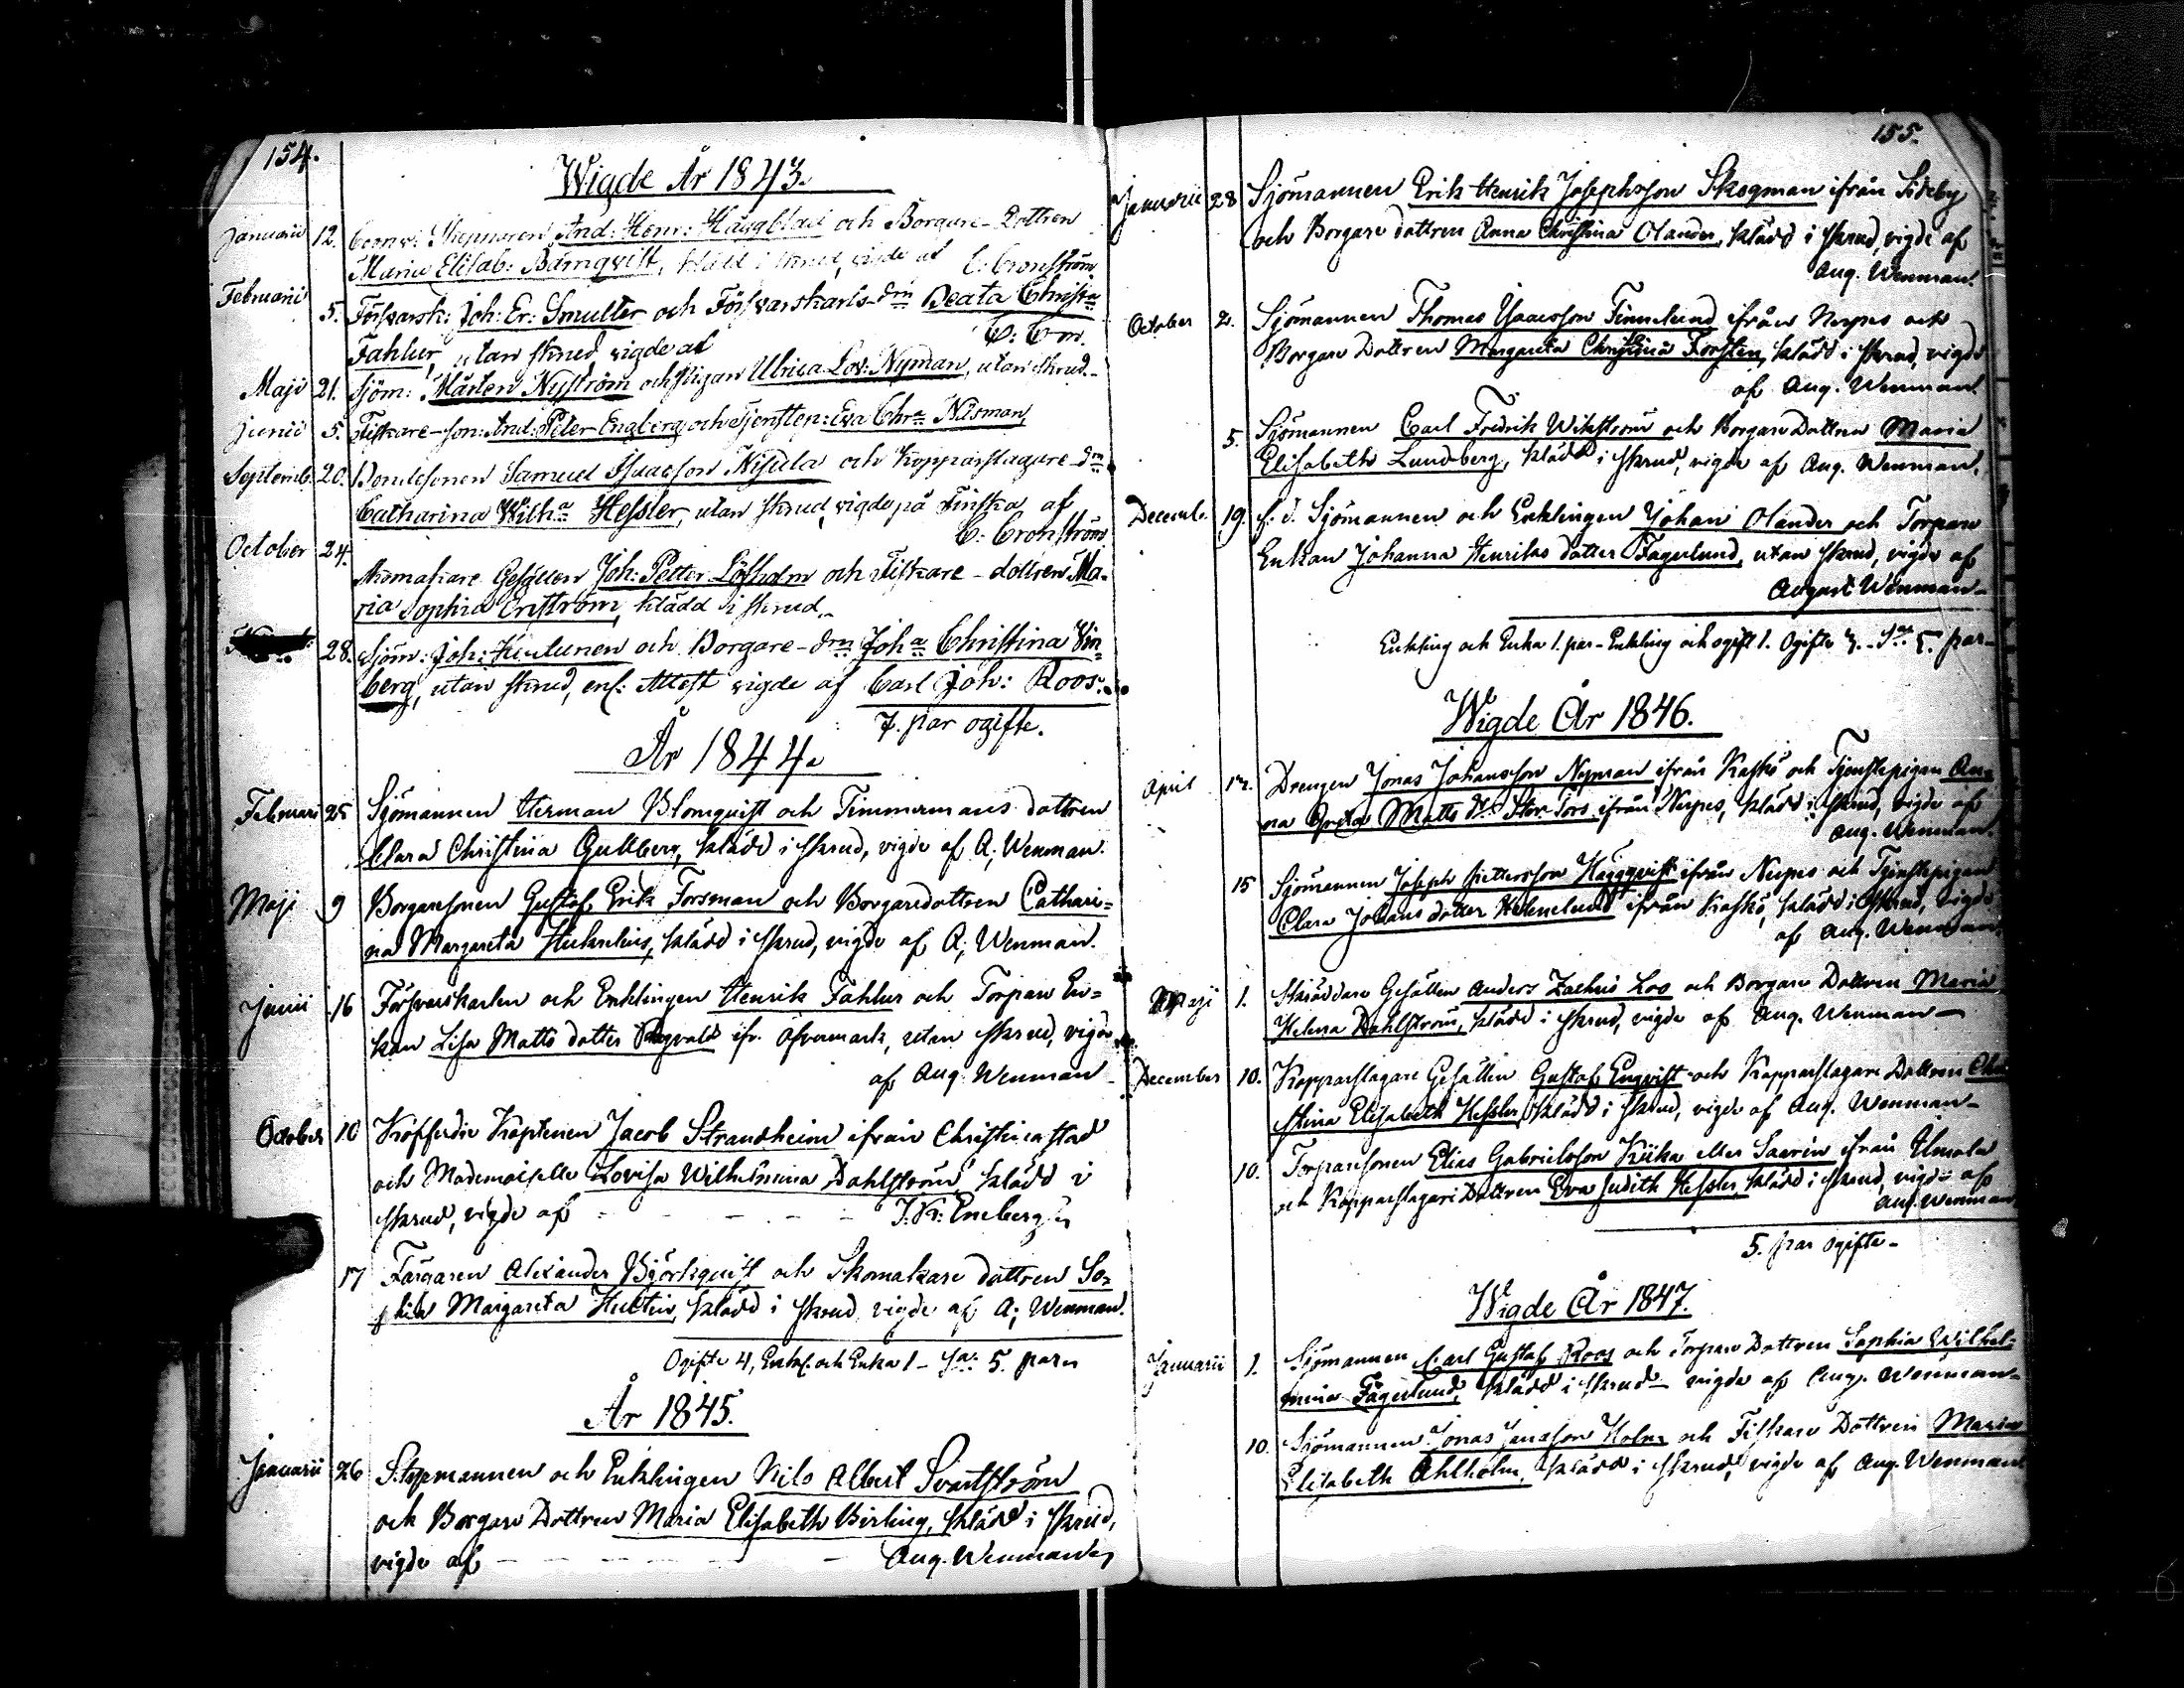 154.
Wigde År 1843.
Januarii 12. Skepparen And: Henr: Häggblad och Borgare-Dottren
Maria Elisab: Bärnqvist, klädd i skrud, vigde af C: Cronström
Februarii 5. Försvarsk: Joh: Er: Smulter och Försvarskarls-drn Beata Christna
Fahlur, utan skrud, vigde af C: Cron.
Maji 21. Sjöm: Mårten Nyström och Pigan Ulrica Lov: Nyman, utan skrud.
Junii 5. Fiskare-son: And: Peter Engberg och Tjenstep: Eva Chra Nisman,
Septemb. 20. Bondesonen Samuel Isaacson Nisula och Kopparslagare-drn
Catharina Wilha Hessler, utan skrud, vigde på Finska af
C: Cronström
October 24. Skomakare Gesällen Joh: Petter Löfholm och Fiskare-dottren Ma-
ria Sophia Enström, klädd i skrud.
28. Sjöm: Joh: och Borgare-drn Joha Christina Vin-
berg, utan skrud, enl: Attest vigde af Carl Joh: Roos.
7. par ogifte.
År 1844.
Februarii 25 Sjömannen Herman Blomquist och Timmermans dottren
Clara Christina Gullberg, klädd i skrud, vigde af A; Wenman.
Maji 9 Borgaresonen Gustaf Erik Forsman och Borgaredottren Cathari=
na Margareta klädd i skrud, vigde af A; Wenman.
Junii 16 Försvarskarlen och Enklingen Henrik Fahlur och Torpare En=
kan Lisa Matts dotter ifr. Öfvermark, utan skrud, vigde
af Aug. Wenman
October 10 Köpferdie Kaptenen Jacob Strandheim ifrån Christinæstad
och Mademoiselle Lovisa Wilhelmina Dahlström klädd i
skrud, vigde af - - - - J: K: Eneberg
17 Färgaren Alexander Björkquist och Skomakare dottren So-
phia Margareta Hultin, klädd i skrud, vigde af A; Wenman.
Ogifte 4, Enkl. och Enka 1 - Sa: 5. par
År 1845.
Januarii 26 Styrmannen och Enklingen Nils Albert Svartström
och Borgare Dottren Maria Elisabeth Berling, klädd i skrud,
vigde af - - - - - Aug. Wenman
155.
Januarii 28 Sjömannen Erik Henrik Josephsson Skogman ifrån Sideby
och Borgare dottren Anna Christina Olander, klädd i skrud, vigde af
Aug. Wenman.
October 2. Sjömannen Thomas Isaacsson Finnelund ifrån Nerpes och
Borgare Dottren Margareta Christina Forstén, klädd i skrud, vigde
af Aug. Wenman.
5. Sjömannen Carl Fredrik Wikström och Borgare Dottren Maria
Elisabeth Lundberg, klädd i skrud, vigde af Aug. Wenman.
Decemb. 19. f. d. Sjömannen och Enklingen Johan Olander och Torpare
Enkan Johanna Henriks dotter Fagerlund, utan skrud, vigde af
August Wenman
Enkling och Enka 1. par - Enkling och ogift 1. Ogifte 3. - Sa: 5. par -
Wigde År 1846.
April 12. Drengen Jonas Johansson Nyman ifrån Kaskö och Tjenstepigan An-
na Greta Matts dr Stor-Tors ifrån Nerpes, klädd i skrud, vigde af
Aug. Wenman.
15 Sjömannen Joseph Pettersson Häggqvist ifrån Nerpes och Tjenstepigan
Clara Johans dotter Helenelund ifrån Kaskö, klädd i skrud, vigde
af Aug. Wenman.
Maji 1. Skräddare Gesällen Anders Zachris Loo och Borgare Dottren Maria
Helena Dahlström, klädd i skrud, vigde af Aug. Wenman
December 10. Kopparslagare Gesällen Gustaf Enqvist och Kopparslagare Dottren Chri-
stina Elisabeth Hessler, klädd i skrud, vigde af Aug. Wenman -
10. Torparesonen Elias Gabrielsson Kiika eller Saarin ifrån Ilmola
och Kopparslagare Dottren Eva Judith Hessler, klädd i skrud, vigde af
Aug. Wenman
5. par ogifte -
Wigde År 1847.
Januarii 1. Sjömannen Carl Gustaf Roos och Torpare Dottren Sophia Wilhel-
mina Fagerlund, klädd i skrud - vigde af Aug. Wenman -
10. Sjömannen Jonas Jonasson Holm och Fiskare Dottren Maria
Elisabeth Ahlholm, klädd i skrud, vigde af Aug. Wenman